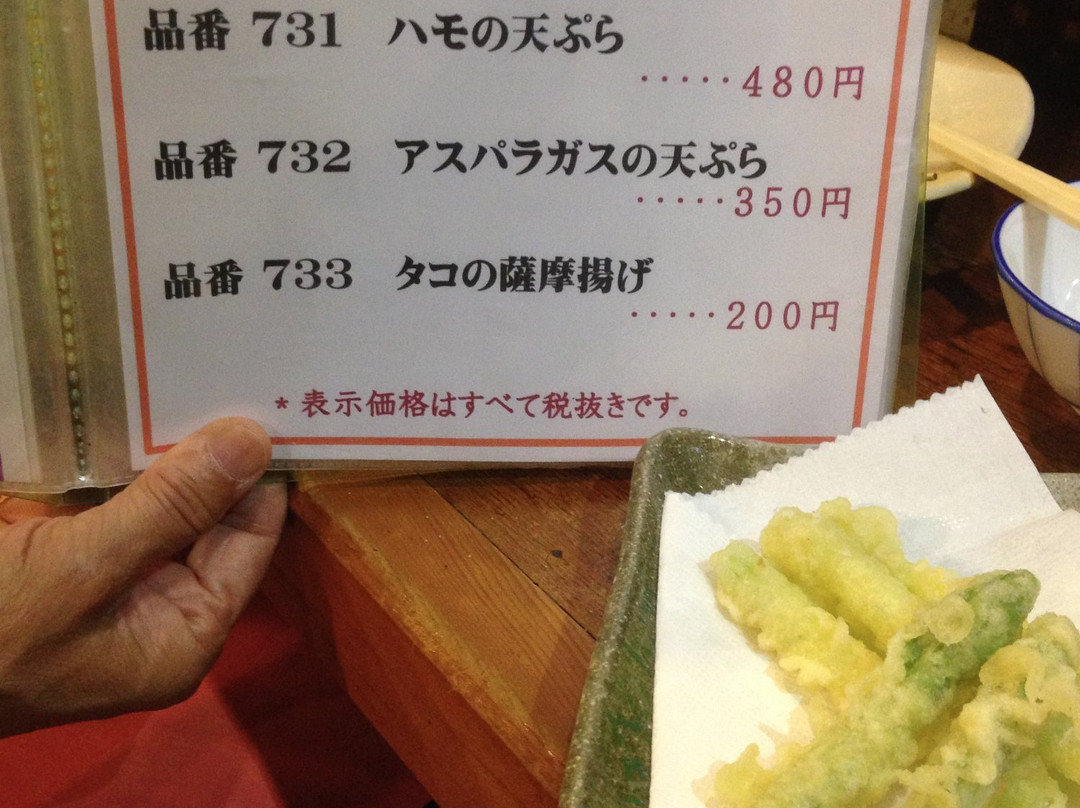 品番 731 ハモの天ぷら
・・・・・480円
品番 732 アスパラガスの天ぷら
・・・・・350円
品番 733 タコの薩摩揚げ
・・・・・200円
*表示価格はすべて税抜きです。